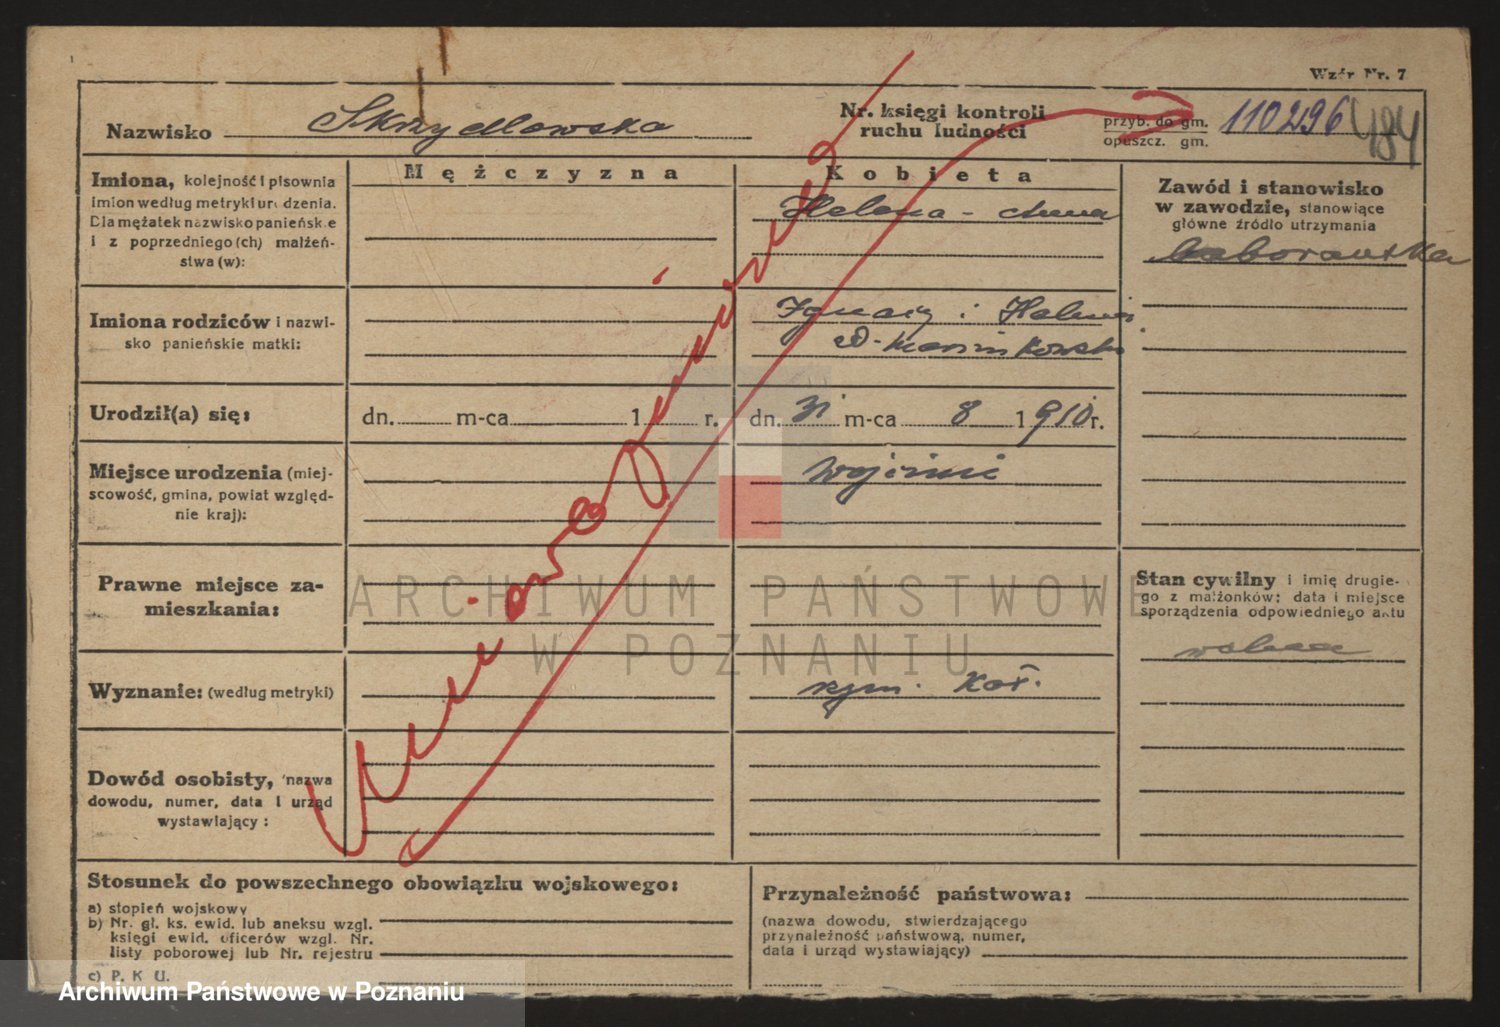 Wzór Nr. 7
Nazwisko Skrzydlewska
Nr. księgi kontroli
ruchu ludności
przyb. do gm.
opuszcz. gm.
110296
484
Mężczyzna
Kobieta
Imiona, kolejność i pisownia
imion według metryki urodzenia.
Dla mężatek nazwisko panieńskie
i z poprzedniego (ch) małżeń-
stwa (w):
Helena - Anna
Zawód i stanowisko
w zawodzie, stanowiące
główne źródło utrzymania
laborantka
Imiona rodziców i nazwi-
sko panieńskie matki:
Ignacy i Helena
Urodził(a) się:
dn. m-ca 1 r.
dn. 31 m-ca 8 1910 r.
Miejsce urodzenia (miej-
scowość, gmina, powiat względ-
nie kraj):
Prawne miejsce za-
mieszkania:
Stan cywilny i imię drugie-
go z małżonków; data i miejsce
sporządzenia odpowiedniego aktu
wolna
Wyznanie: (według metryki)
rzym. kat.
Dowód osobisty, nazwa
dowodu, numer, data i urząd
wystawiający:
Stosunek do powszechnego obowiązku wojskowego:
a) stopień wojskowy
b) Nr. gł. ks. ewid. lub aneksu wzgl.
księgi ewid. oficerów wzgl. Nr.
listy poborowej lub Nr. rejestru
c) P. K. U.
Przynależność państwowa:
(nazwa dowodu, stwierdzającego
przynależność państwową, numer,
data i urząd wystawiający)
ARCHIWUM PAŃSTWOWE
W POZNANIU
Archiwum Państwowe w Poznaniu